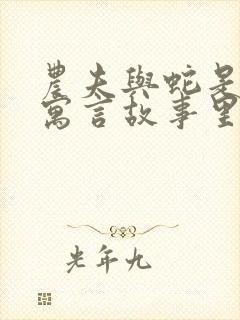 農夫與蛇是
寓言故事里
光年九